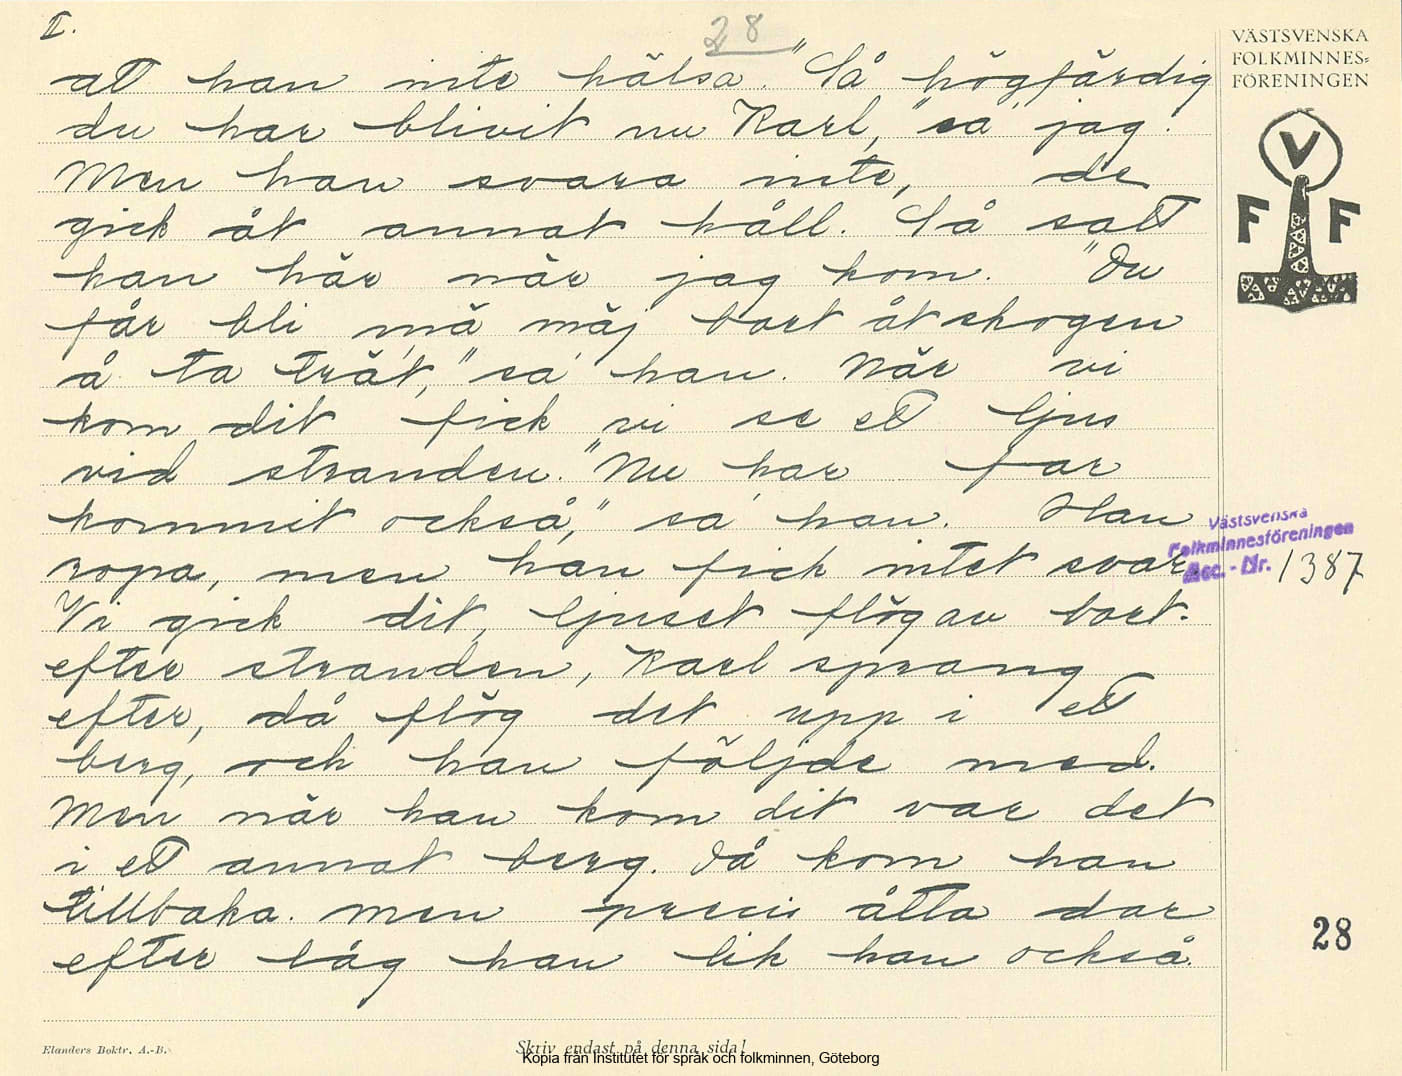 II.
28
VÄSTSVENSKA
FOLKMINNES-
FÖRENINGEN
V
F F
att han inte hälsa. "Så högfärdig
du har blivit nu Karl," sa' jag.
Men han svara inte, de
gick åt annat håll. Så satt
han här när jag kom. "Du
får bli mä mäj bort åt skogen
å ta trät," sa' han. När vi
kom dit fick vi se ett ljus
vid stranden. "Nu har far
kommit också," sa' han. Han
ropa, men han fick intet svar.
Vi gick dit, ljuset flög av bort.
efter stranden, Karl sprang
efter, då flög det upp i ett
berg, och han följde med.
Men när han kom dit var det
i ett annat berg. Då kom han
tillbaka. Men precis åtta dar
efter låg han lik han också.
Västsvenska
Folkminnesföreningen
Acc. - Nr. 1387
28
Elanders Boktr. A.-B.
Skriv endast på denna sida!
Kopia från Institutet för språk och folkminnen, Göteborg